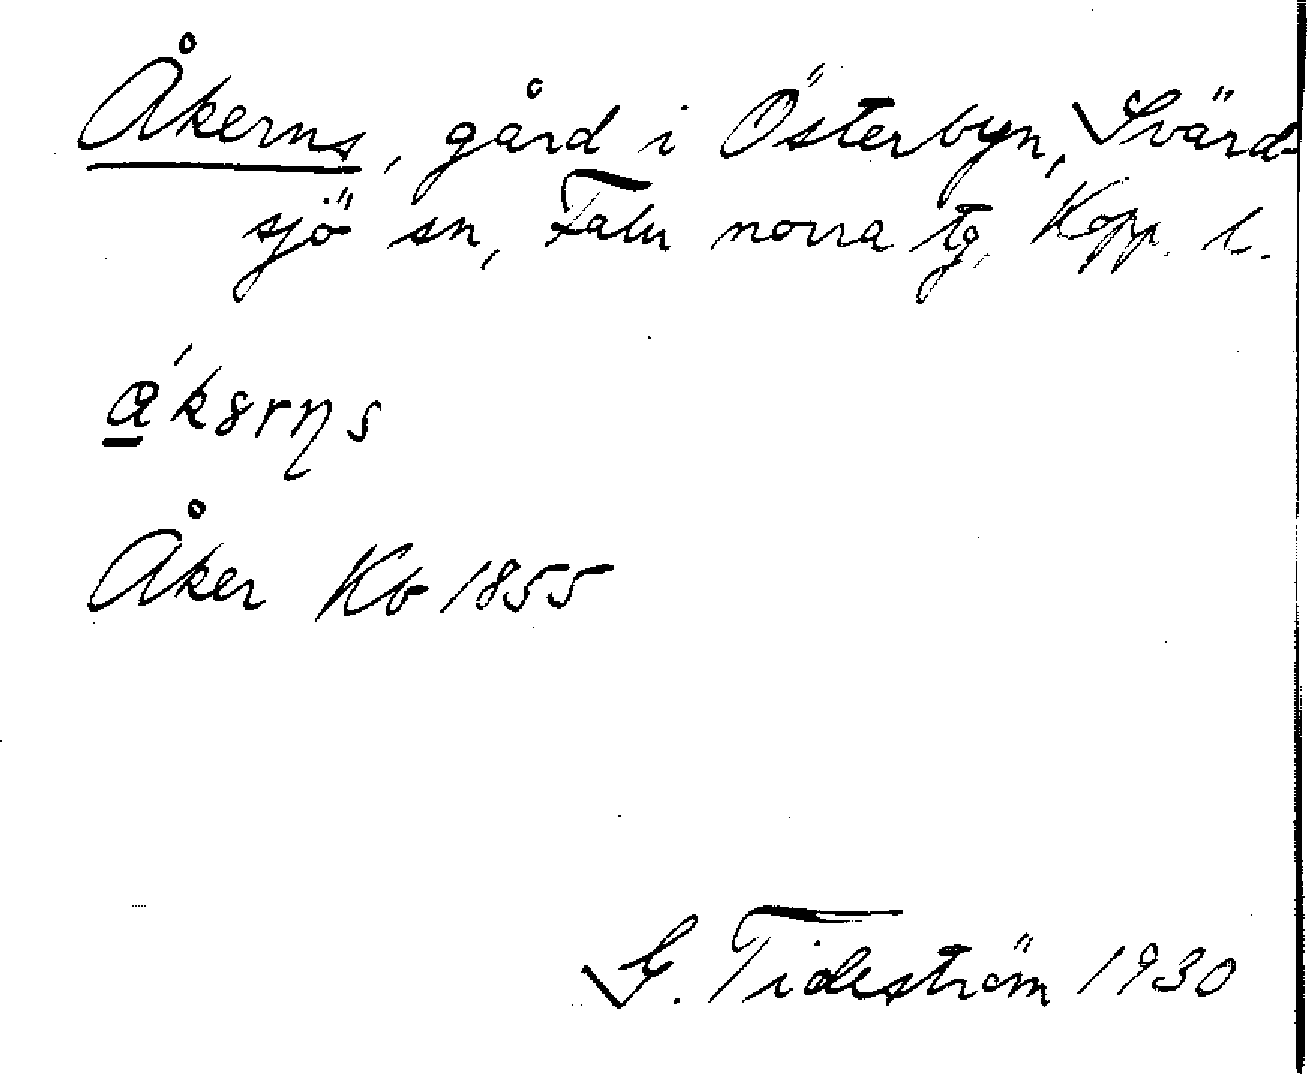 Åkerns, gård i Österbyn, Svärd-
sjö sn, Falu norra tg, Kopp. l.
ǻkərn̥s
Åker Kb 1855
G. Tideström 1930